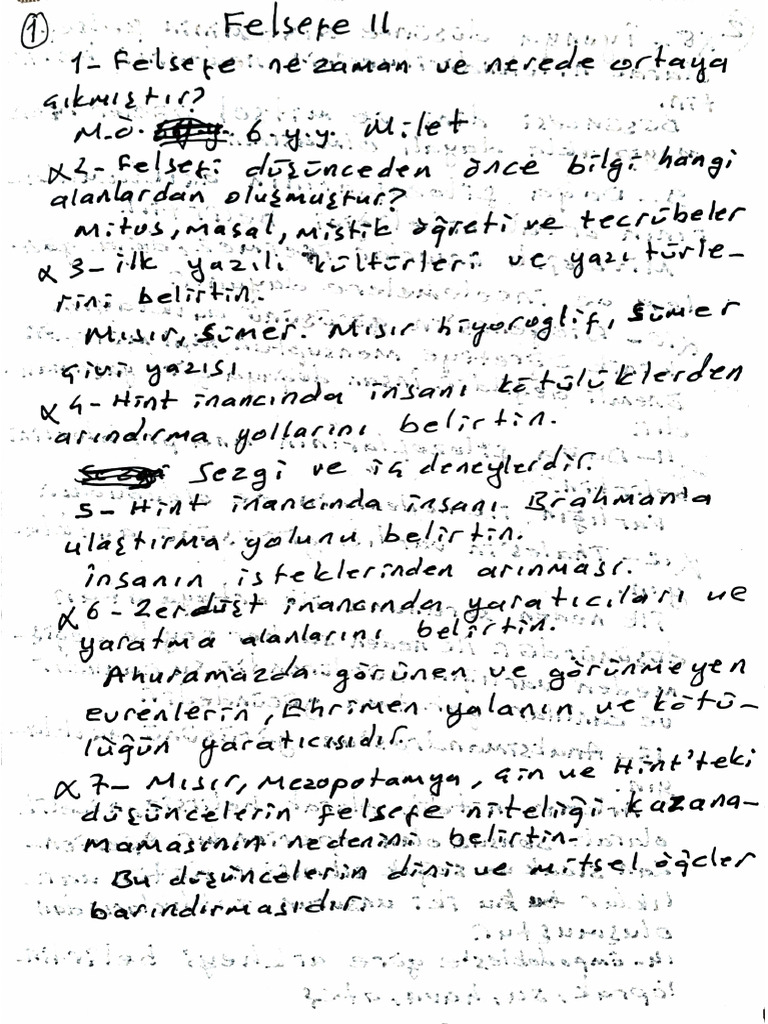 ① Felsefe II
1- Felsefe ne zaman ve nerede ortaya
çıkmıştır?
M.Ö. 6.y.y. Milet
α 2- Felsefi düşünceden önce bilgi hangi
alanlardan oluşmuştur?
Mitos, masal, mistik öğreti ve tecrübeler
α 3- İlk yazılı kültürleri ve yazı türle-
rini belirtin.
Mısır, Sümer. Mısır hiyoroglif, Sümer
çivi yazısı
α 4- Hint inancında insanı kötülüklerden
arındırma yollarını belirtin.
Sezgi ve iç deneylerdir.
5- Hint inancında insanı Brahman'a
ulaştırma yolunu belirtin.
İnsanın isteklerinden arınması.
α 6- Zerdüşt inancında yaratıcıları ve
yaratma alanlarını belirtin.
Ahuramazda görünen ve görünmeyen
evrenlerin, Ehrimen yalanın ve kötü-
lüğün yaratıcısıdır.
α 7- Mısır, Mezopotamya, Çin ve Hint'teki
düşüncelerin felsefe niteliği kazana-
mamasının nedenini belirtin.
Bu düşüncelerin dini ve mitsel öğeler
barındırmasıdır.